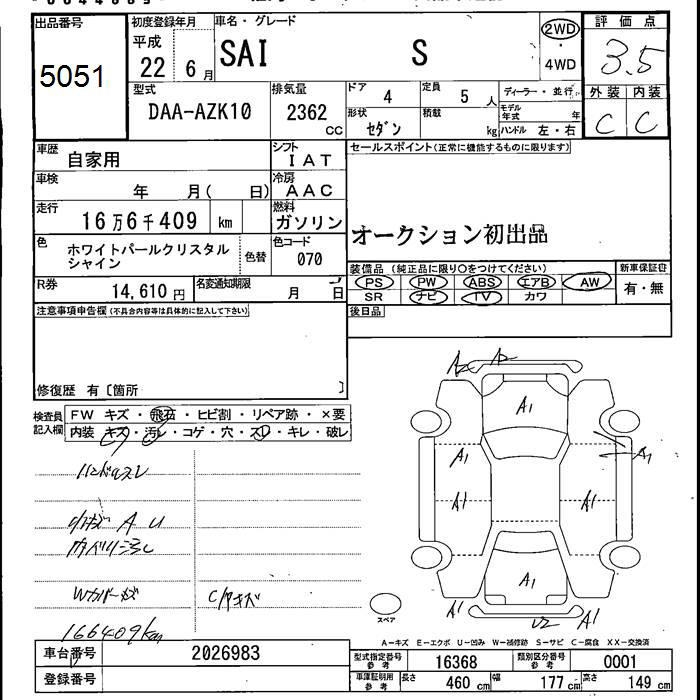 出品番号
5051
初度登録年月
平成
22 6月
車名・グレード
SAI S
2WD
・
4WD
評価点
3.5
外装 内装
C C
型式
DAA-AZK10
排気量
2362
CC
ドア
4
定員
5 人
形状
セダン
積載
kg
ディーラー・並行
モデル年式 年
ハンドル 左・右
車歴
自家用
シフト
IAT
車検
年 月( 日)
冷房
AAC
走行
16万6千409 km
燃料
ガソリン
色
ホワイトパールクリスタル
シャイン
色替
色コード
070
R券
14,610 円
名変通知期限
月 日
セールスポイント(正常に機能するものに限ります)
オークション初出品
装備品 (純正品に限り○をつけてください)
PS PW ABS エアB AW
SR ナビ TV カワ
新車保証書
有・無
後日品
注意事項申告欄(不具合内容等は具体的に記入して下さい)
修復歴 有〔箇所 〕
検査員
記入欄
FW キズ・飛石・ヒビ割・リペア跡・×要
内装 キズ・汚レ・コゲ・穴・スレ・キレ・破レ
ハンドルスレ
A U
C/Pキズ
166409km
A2 A2
A1
A1
A1
A1
A1
A1
A1
A1
U2
A1
スペア
A-キズ E-エクボ U-凹み W-補修跡 S-サビ C-腐食 XX-交換済
車台番号
2026983
型式指定番号
参考
16368
類別区分番号
参考
0001
諸元番号
車庫証明用
参考
長さ 460 cm
幅 177 cm
高さ 149 cm